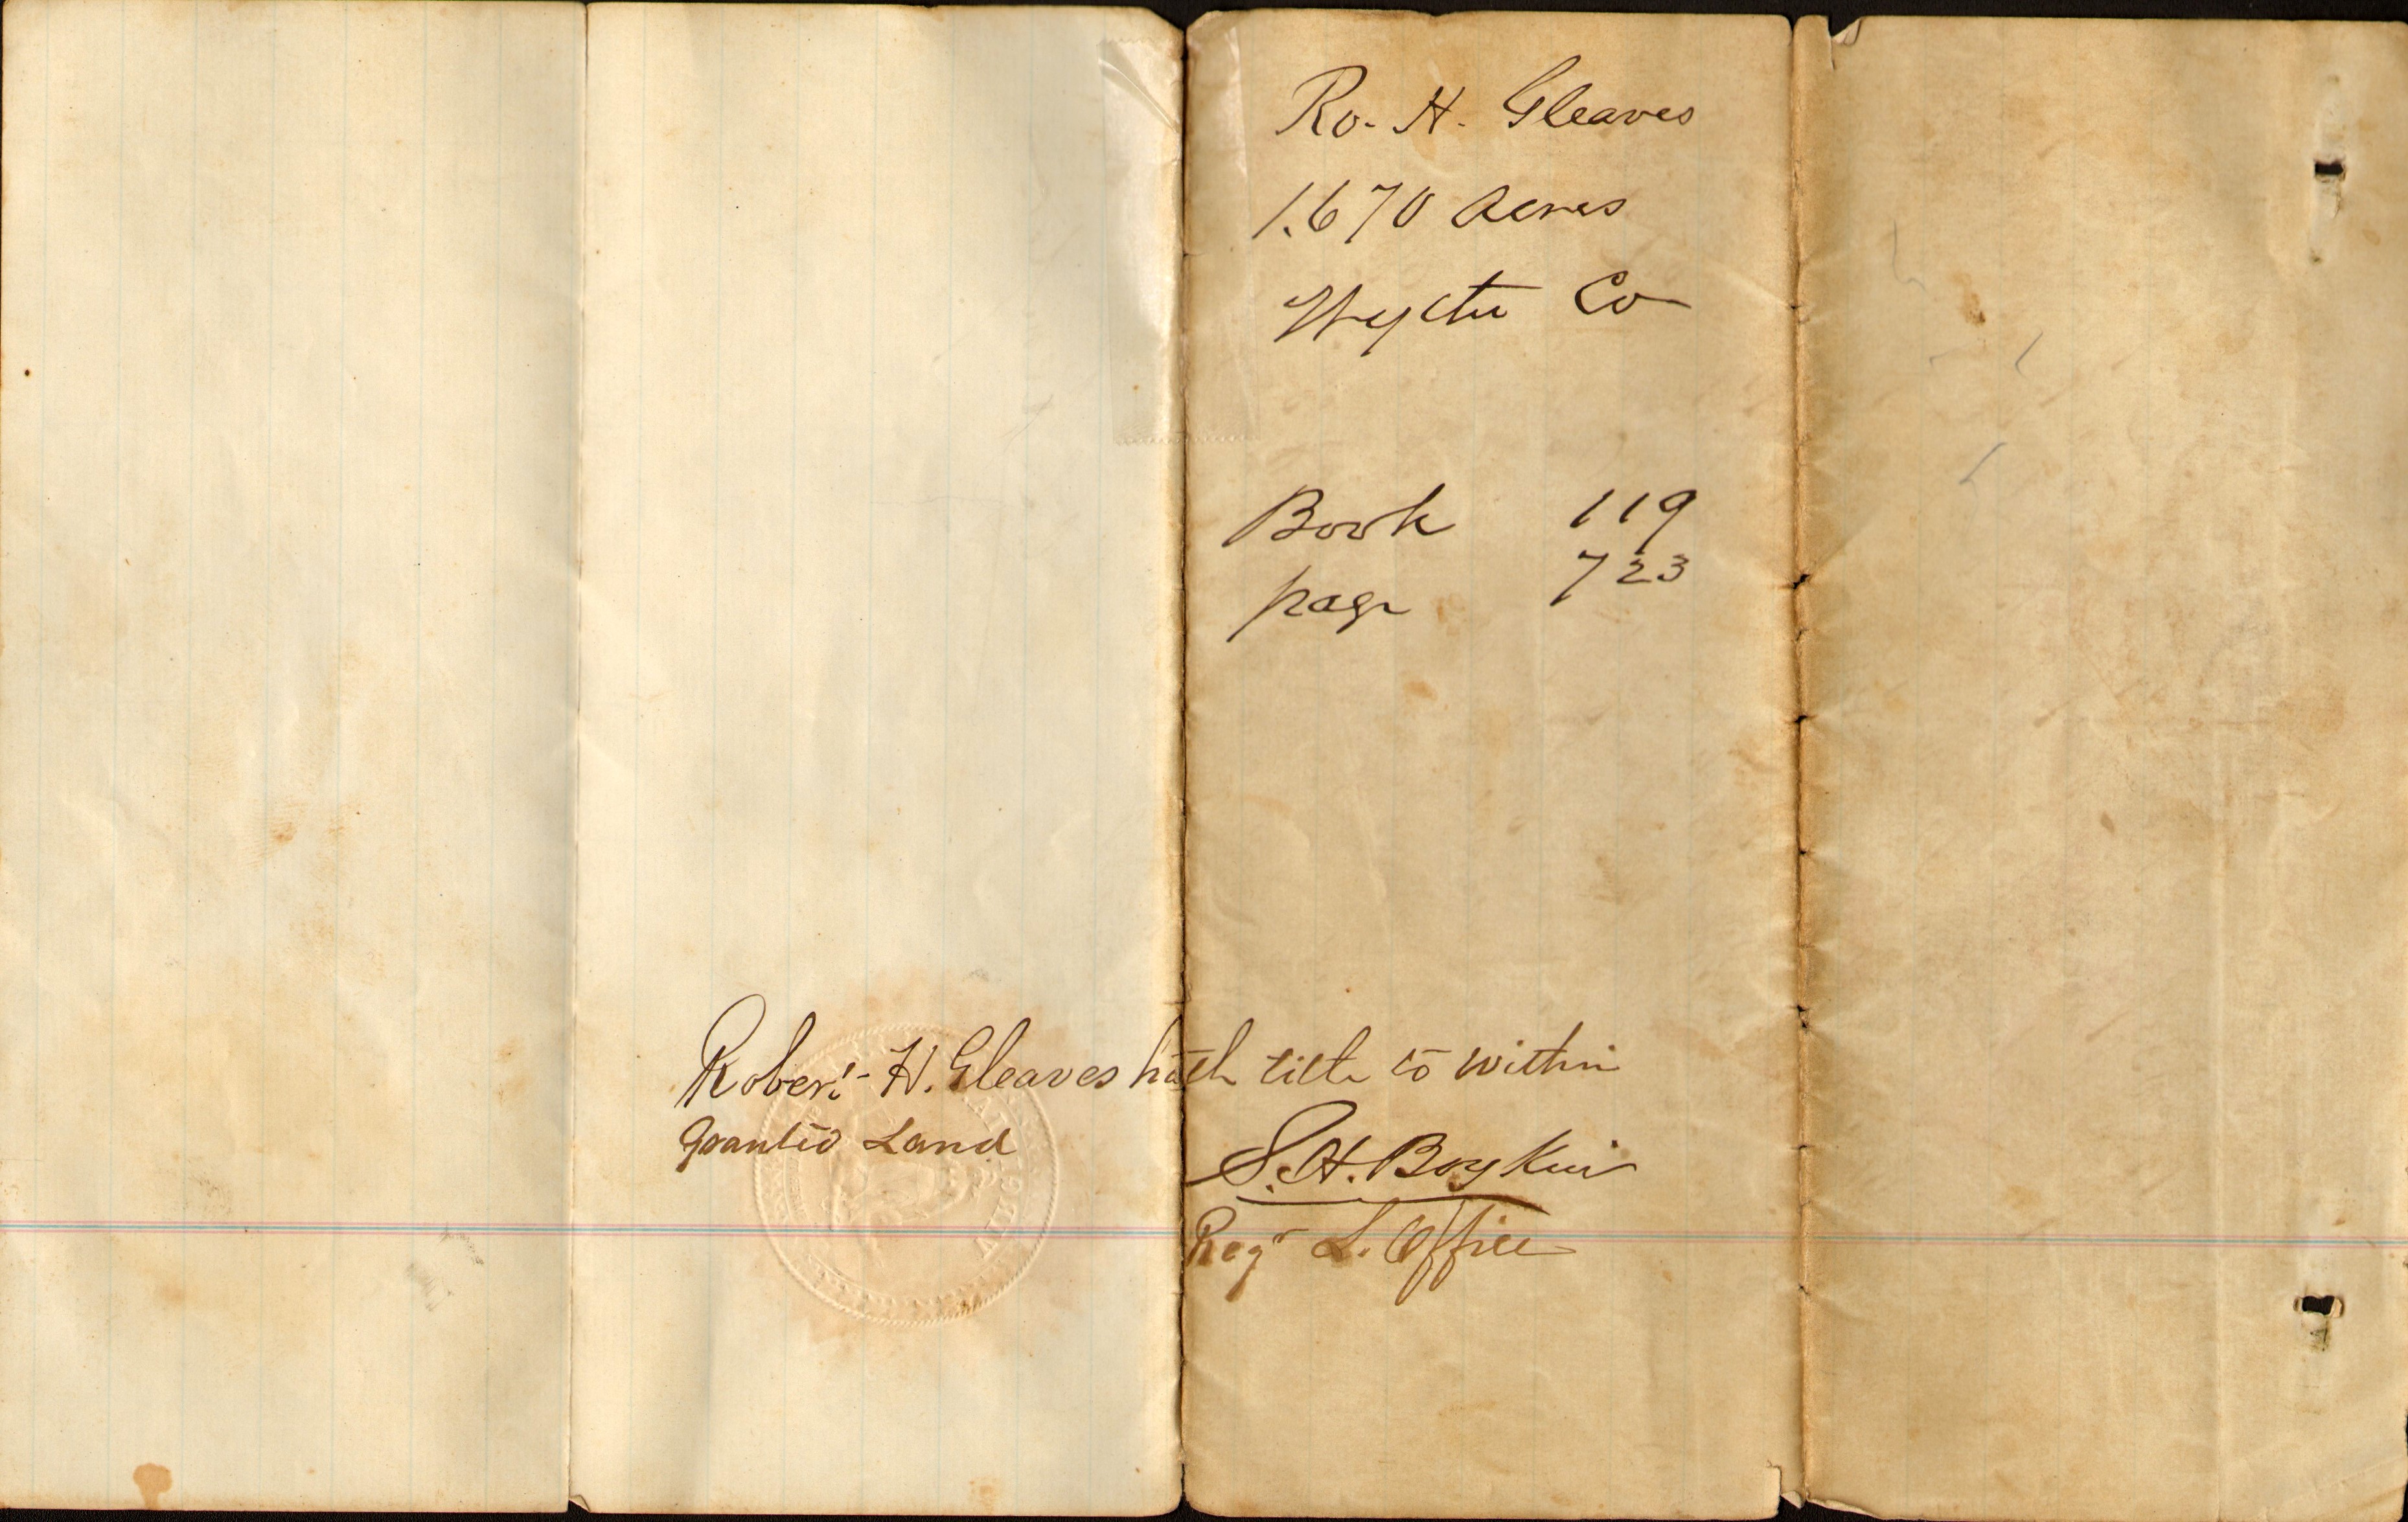 Ro. H. Gleaves
1.670 Acres
Wythe Co
Book 119
page 723
Robert H. Gleaves hath title to within
Granted Land
S. H. Boykin
Regr L. Office